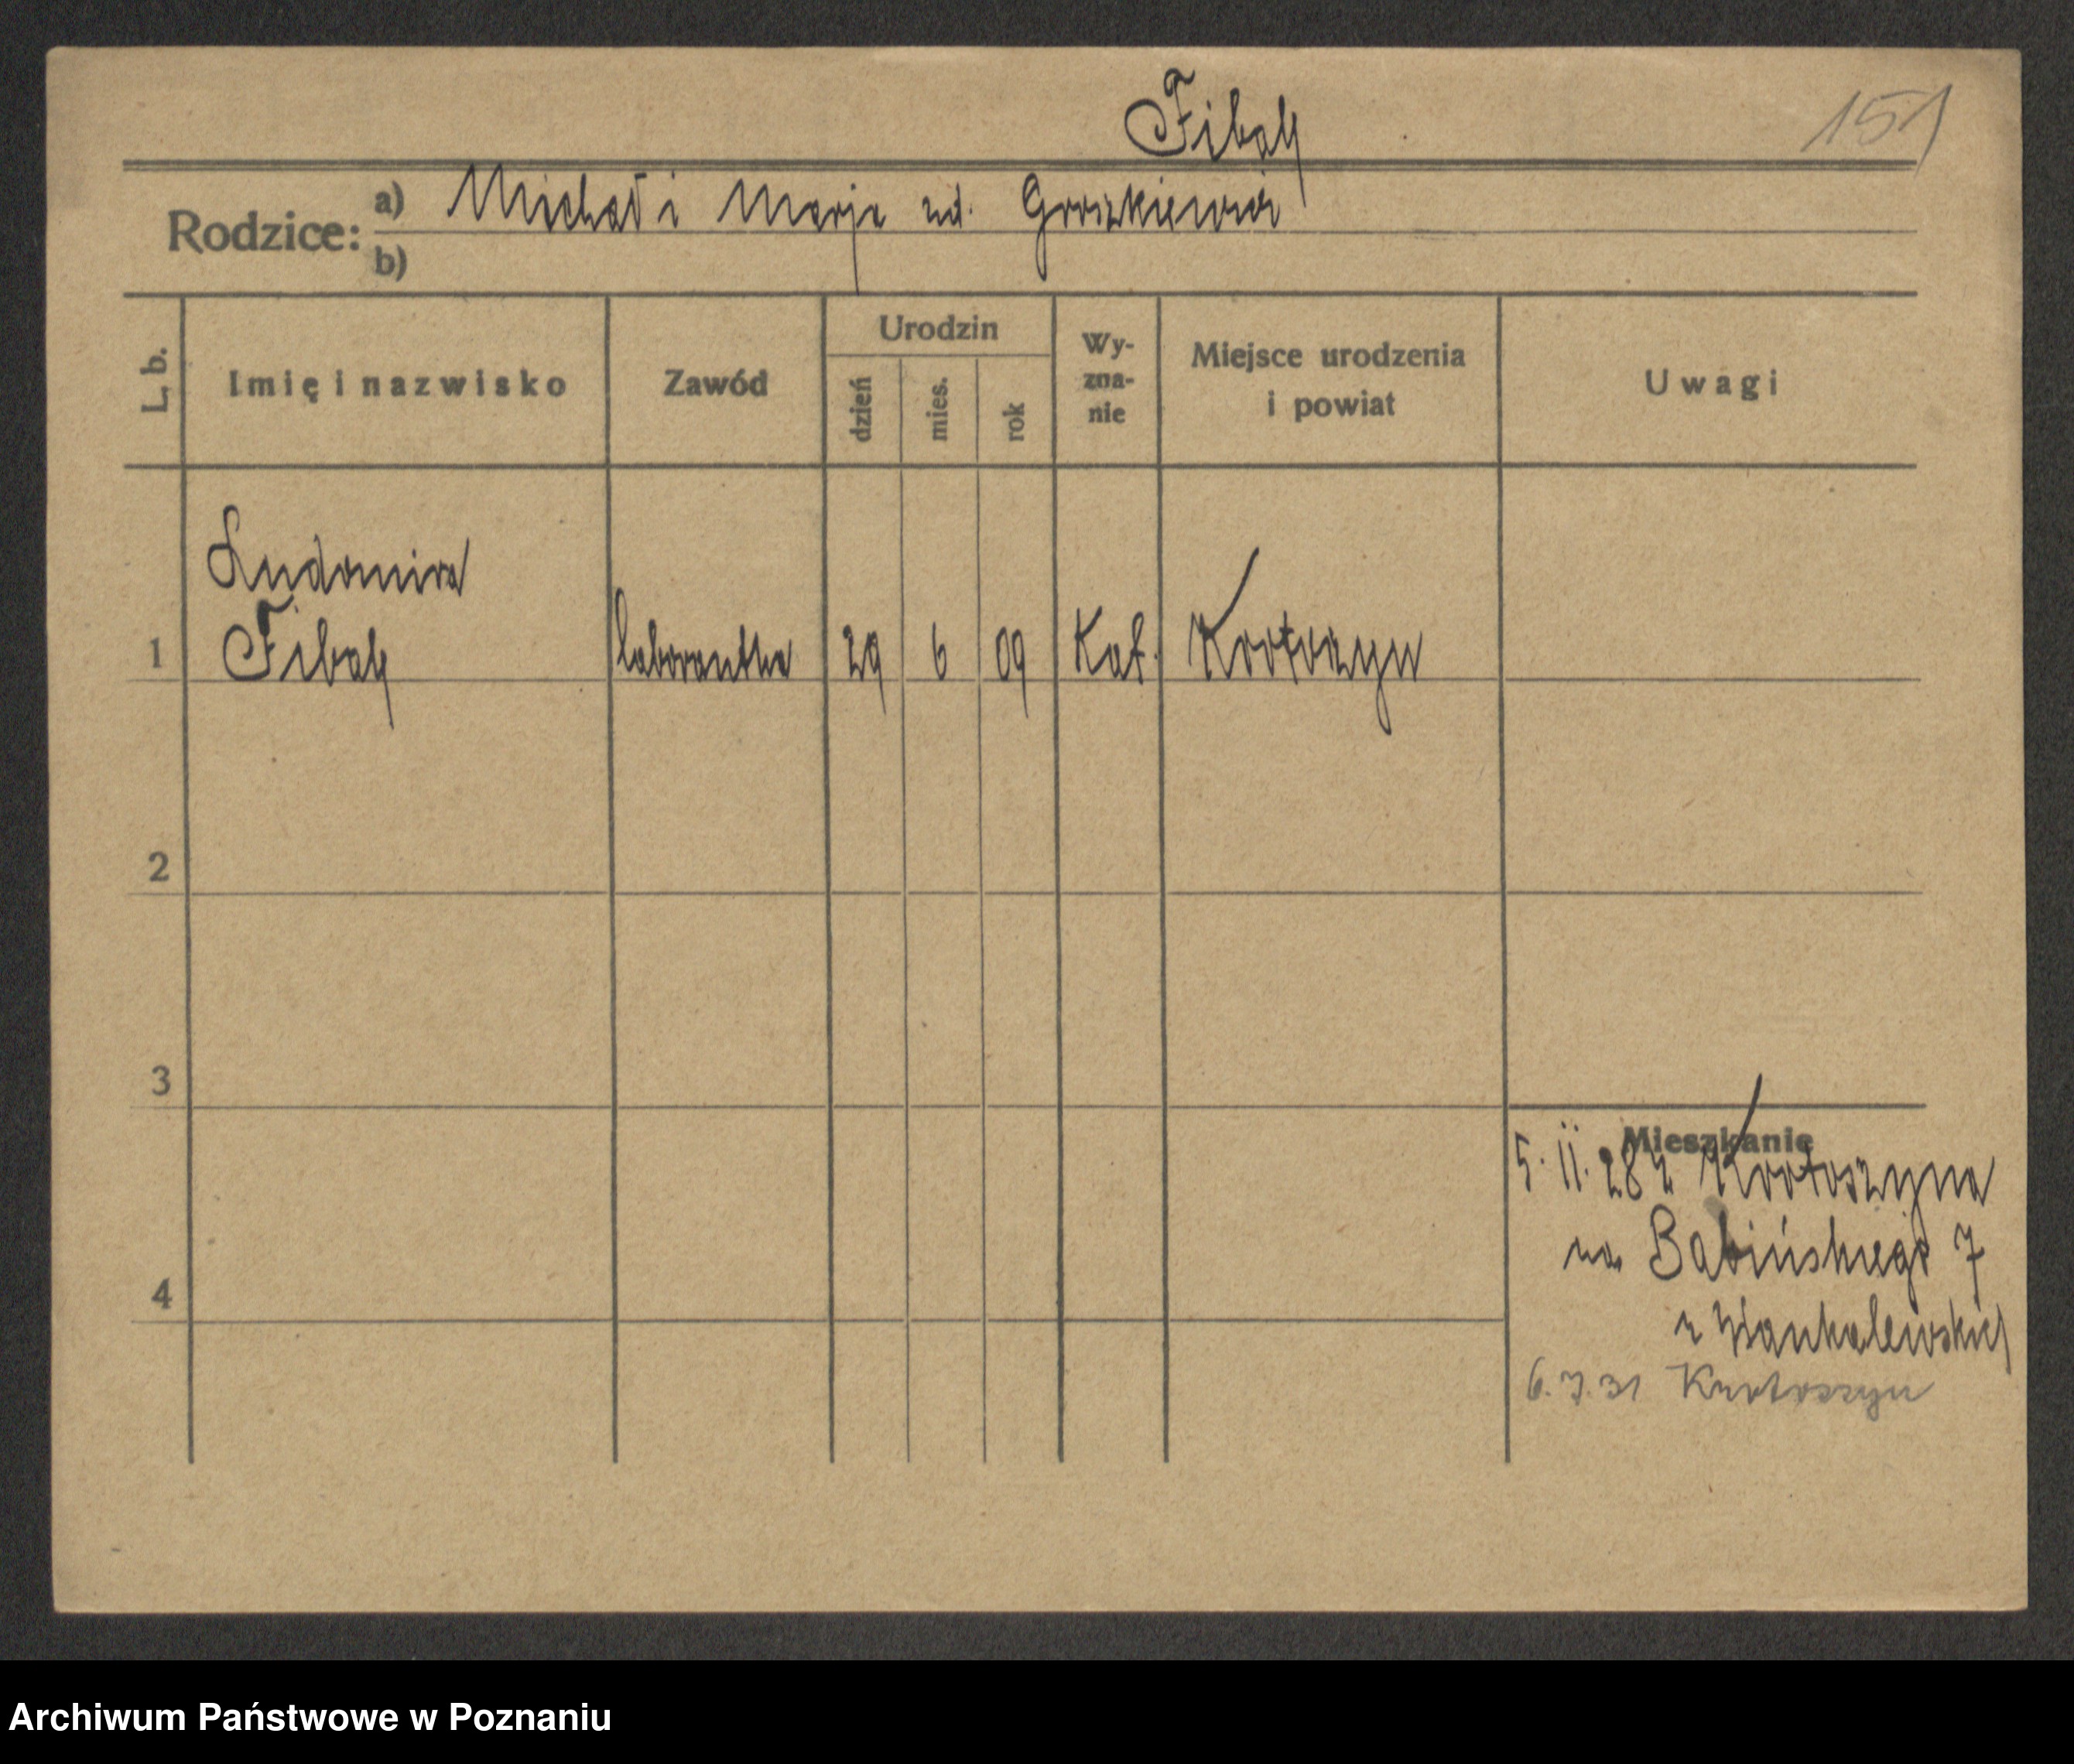 Fibak
151
Rodzice: a) Michał i Marja ud. Groszkiewicz
b)
L. b. Imię i nazwisko Zawód Urodzin dzień mies. rok Wy-zna-nie Miejsce urodzenia i powiat Uwagi
Ludomira
1 Fibak laborantka 29 6 09 Kat. Krotoszyn
2
3
Mieszkanie
5. 11. 28 z Krotoszyna
na Babińskiego 7
4
z
6. 7. 31 Krotoszyn
Archiwum Państwowe w Poznaniu